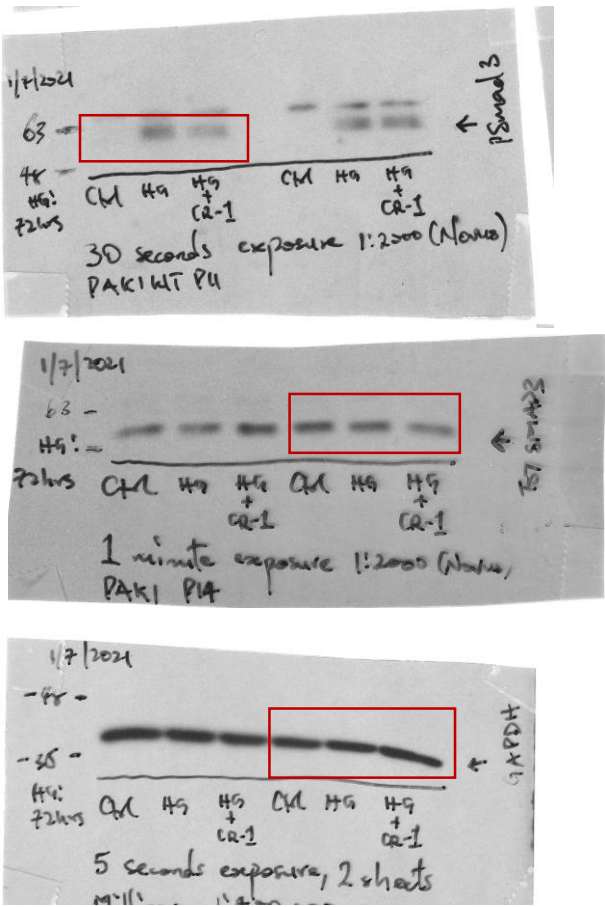 1/7/2021
63 -
48 -
HG:
72hrs
Ctrl HG HG + CR-1 Ctrl HG HG + CR-1
← pSmad3
30 seconds exposure 1:2000 (Novus)
PAK1 WT P11
1/7/2021
63 -
HG:
72hrs
Ctrl HG HG + CR-1 Ctrl HG HG + CR-1
← SMAD3
1 minute exposure 1:2000 (Novus)
PAK1 P14
1/7/2021
- 48 -
- 35 -
HG:
72hrs
Ctrl HG HG + CR-1 Ctrl HG HG + CR-1
↑ GAPDH
5 seconds exposure, 2 sheets